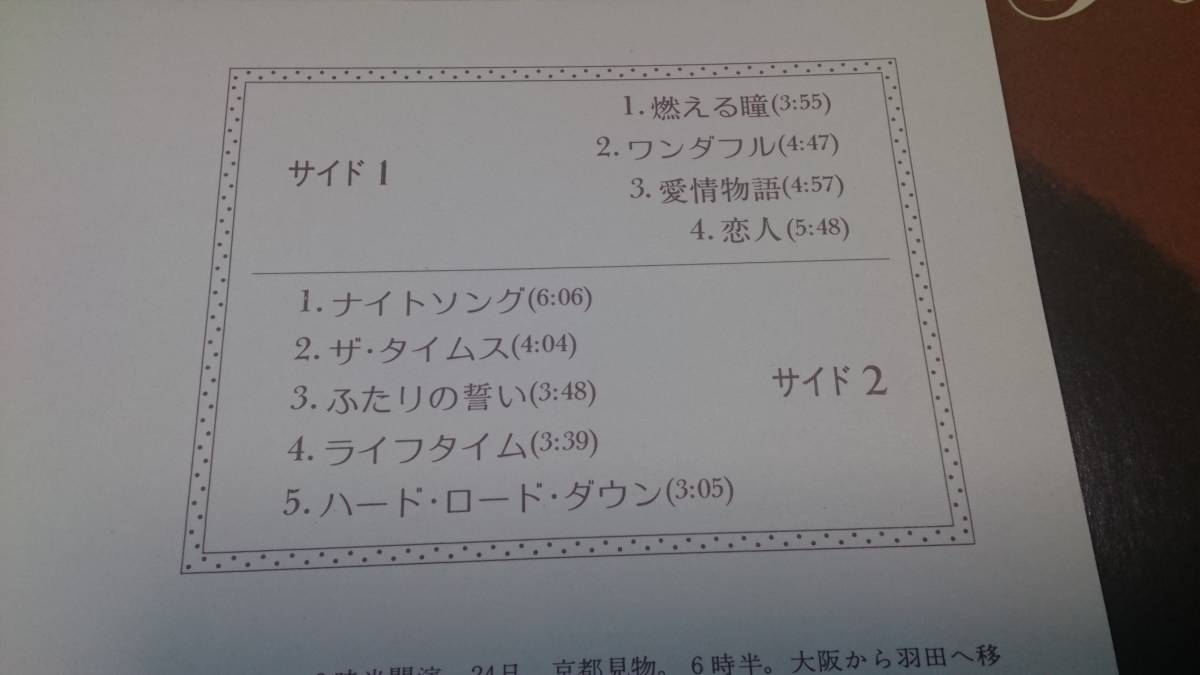 サイド 1
1. 燃える瞳(3:55)
2. ワンダフル(4:47)
3. 愛情物語(4:57)
4. 恋人(5:48)
1. ナイトソング(6:06)
2. ザ・タイムス(4:04)
3. ふたりの誓い(3:48)
4. ライフタイム(3:39)
5. ハード・ロード・ダウン(3:05)
サイド 2
時半開演。24日、京都見物。6時半。大阪から羽田へ移